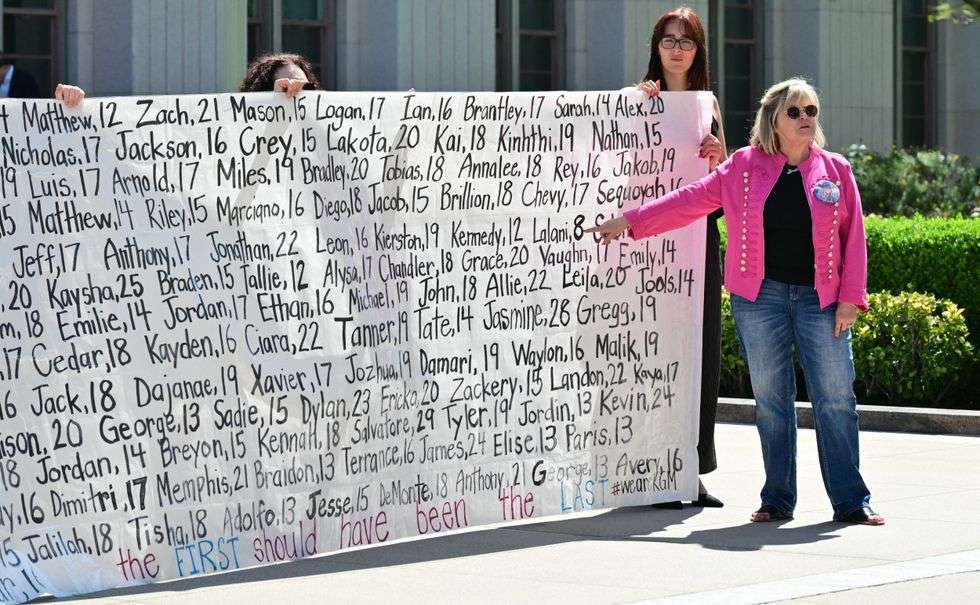 4 Matthew,12 Zach,21 Mason,15 Logan,17 Ian,16 Brantley,17 Sarah,14 Alex,20
Nicholas,17 Jackson,16 Crey,15 Lakota,20 Kai,18 Kinhthi,19 Nathan,15
19 Luis,17 Arnold,17 Miles,19 Bradley,20 Tobias,18 Annalee,18 Rey,16 Jakob,19
15 Matthew,14 Riley,15 Marciano,16 Diego,18 Jacob,15 Brillion,18 Chevy,17 Sequoyah,16
Jeff,17 Anthony,17 Jonathan,22 Leon,16 Kierston,19 Kennedy,12 Lalani,8
20 Kaysha,25 Braden,15 Tallie,12 Alysa,17 Chandler,18 Grace,20 Vaughn,17 Emily,14
18 Emilie,14 Jordan,17 Ethan,16 Michael,19 John,18 Allie,22 Leija,20 Jools,14
17 Cedar,18 Kayden,16 Ciara,22 Tanner,19 Tate,14 Jasmine,28 Gregg,19
16 Jack,18 Dajanae,19 Xavier,17 Jozhua,19 Damari,19 Waylon,16 Malik,19
20 George,13 Sadie,15 Dylan,23 Ericka,20 Zackery,15 Landon,22 Kaya,17
18 Jordan,14 Breyon,15 Kennah,18 Salvatore,29 Tyler,19 Jordin,13 Kevin,24
16 Dimitri,17 Memphis,21 Braidon,13 Terrance,16 James,24 Elise,13 Paris,13
15 Jalilah,18 Tisha,18 Adolfo,13 Jesse,15 DeMonte,18 Anthony,21 George,13 Avery,16
16 the FIRST should have been the LAST #weareKGM